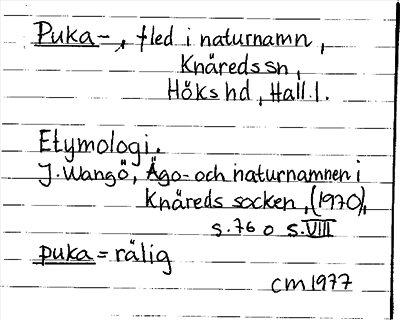 Puka-, fled i naturnamn,
Knäreds sn,
Höks hd, Hall.l.
Etymologi.
J. Wangö, Ägo- och naturnamnen i
Knäreds socken, (1970),
s. 76 o s. VIII
puka = rälig
cm 1977